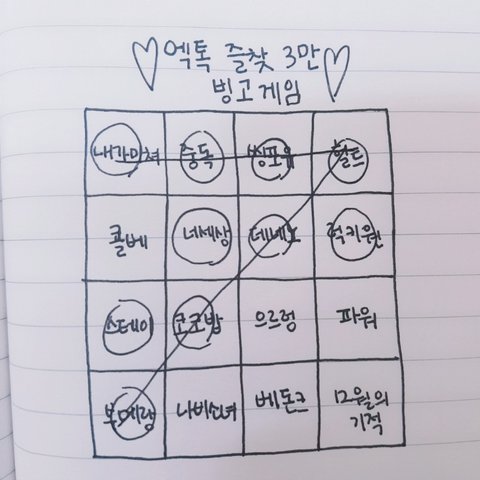 엑톡 즐찾 3만
빙고게임
내가미쳐 중독 씽포유 헐트
콜베 네세상 데네노 럭키원
스테이 코코밥 으르렁 파워
부메랑 나비소녀 베돈크 12월의
기적